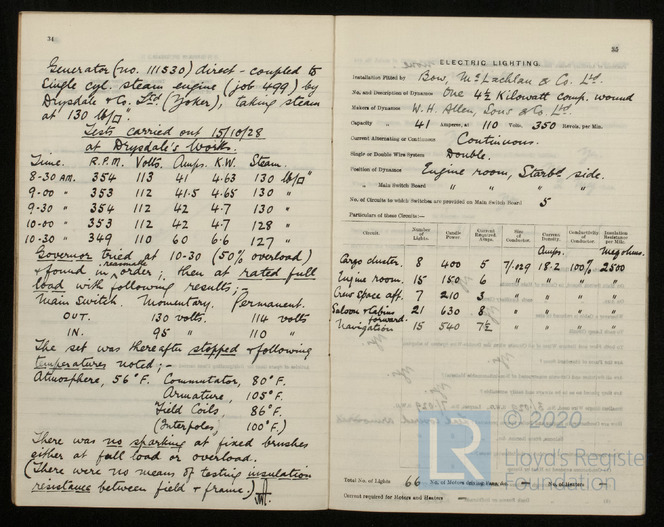 34
Generator (no. 111530) direct-coupled to
single cyl. steam engine (job 499) by
Drysdale & Co. Ltd (Yoker), taking steam
at 130 lb/□".
Tests carried out 15/10/28
at Drysdale's Works.
Time. R.P.M. Volts. Amps. K.W. Steam.
8-30 A.M. 354 113 41 4.63 130 lb/□"
9-00 " 353 112 41.5 4.65 130 "
9-30 " 354 112 42 4.7 130 "
10-00 " 353 112 42 4.7 128 "
10-30 " 349 110 60 6.6 127 "
Governor tried at 10-30 (50% overload)
& found in reasonable order; then at rated full
load with following results;-
Main Switch. Momentary. Permanent.
OUT. 130 volts. 114 volts
IN. 95 " 110 "
The set was thereafter stopped & following
temperatures noted;-
Atmosphere, 56°F. Commutator, 80°F.
Armature, 105°F.
Field Coils, 86°F.
(Interpoles, 100°F.)
There was no sparking at fixed brushes
either at full load or overload.
(There were no means of testing insulation
resistance between field & frame.)
35
ELECTRIC LIGHTING.
Installation Fitted by Bow, McLachlan & Co. Ltd.
No. and Description of Dynamos One 4½ Kilowatt comp. wound
Makers of Dynamos W. H. Allen, Sons & Co. Ltd.
Capacity " 41 Amperes, at 110 Volts, 350 Revols. per Min.
Current Alternating or Continuous Continuous.
Single or Double Wire System Double.
Position of Dynamos Engine room, Starbd side.
" Main Switch Board " " " "
No. of Circuits to which Switches are provided on Main Switch Board 5
Particulars of these Circuits:—
Circuit. Number of Lights. Candle Power. Current Required Amps. Size of Conductor. Current Density. Conductivity of Conductor. Insulation Resistance per Mile.
Amps. Megohms.
Cargo cluster. 8 400 5 7/.029 18.2 100% 2500
Engine room. 15 150 6 " " " "
Crew space aft. 7 210 3 " " " "
Saloon & Cabins forward. 21 630 8 " " " "
Navigation 15 540 7½ " " " "
Total No. of Lights 66 No. of Motors driving Fans, &c. — No. of Heaters —
Current required for Motors and Heaters —
© 2020
LR
Lloyd's Register
Foundation